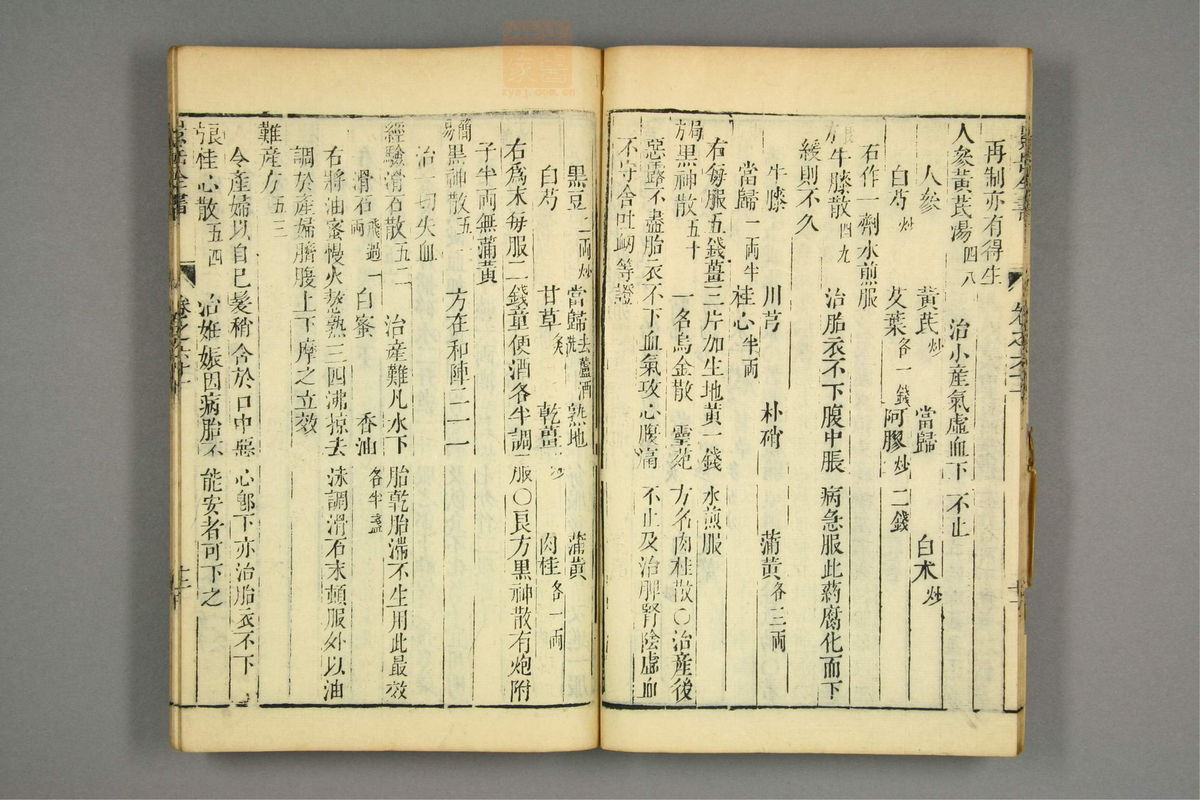 再制亦有得生
人參黃芪湯四八 治小產氣虛血下不止
人參 黃芪炒 當歸 白朮炒
白芍炒 艾葉各一錢 阿膠炒二錢
右作一劑水煎服
牛膝散四九 治胎衣不下腹中脹 病急服此藥腐化而下
緩則不久
牛膝 川芎 朴硝 蒲黃各三兩
當歸二兩半 桂心半兩
右每服五錢薑三片加生地黃一錢水煎服
局方黑神散五十 一名烏金散 靈苑方名肉桂散○治產後
惡露不盡胎衣不下血氣攻心腹痛 不止及治脾腎陰虛血
不守舍吐衂等證
黑豆二兩炒 當歸去蘆酒洗 熟地 蒲黃
白芍 甘草炙 乾薑炒 肉桂各一兩
右為末每服二錢童便酒各半調服○良方黑神散有炮附
子半兩無蒲黃
簡易黑神散五一 方在和陣二一一
治一切失血
經驗滑石散五二 治產難凡水下 胎乾胎滯不生用此最效
滑石飛過一兩 白蜜 香油各半盞
右將油蜜慢火熬熟三四沸掠去沫調滑石末頓服外以油
調於產婦臍腹上下摩之立效
難產方五三
令產婦以自己髮稍含於口中惡心鄔下亦治胎衣不下
張桂心散五四 治妊娠因病胎不能安者可下之
景岳全書 卷之六十一